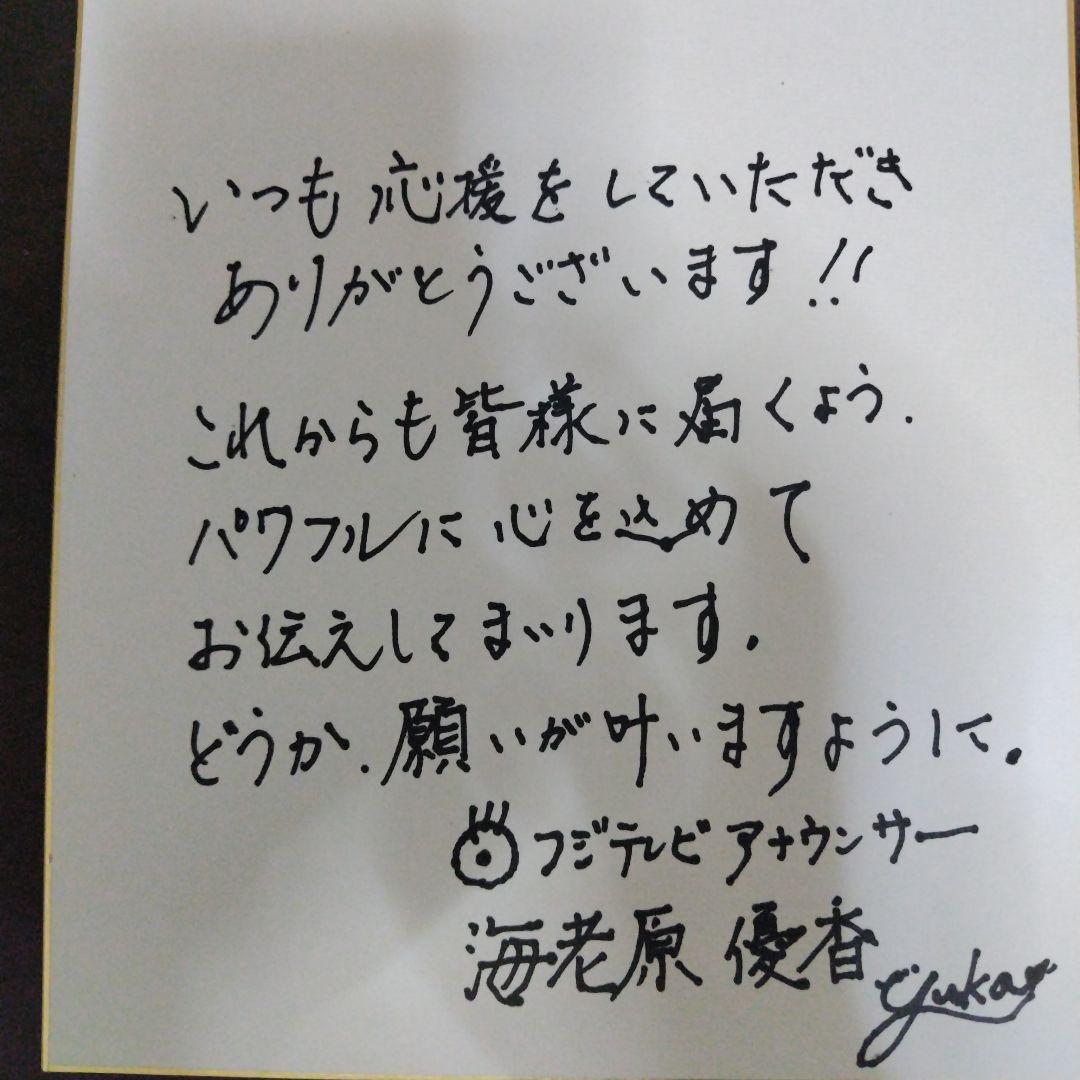 いつも応援をしていただき
ありがとうございます!!
これからも皆様に届くよう.
パワフルに心を込めて
お伝えしてまいります。
どうか、願いが叶いますように。
フジテレビアナウンサー
海老原優香
yuka